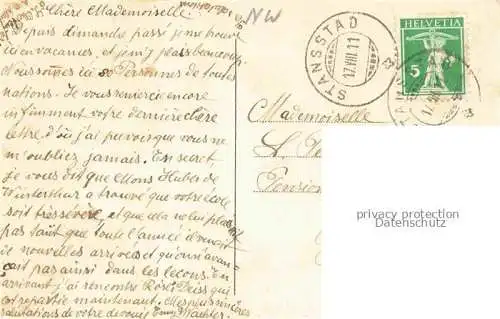 Chère Mademoiselle.
Depuis dimanche passé je me trouve
ici en vacances, et je m'y plais beaucoup.
Nous sommes ici 80 Personnes de toutes
nations. Je vous remercie encore
infiniment votre dernière chère
lettre, d'où j'ai pu voir que vous ne
m'oubliez jamais. En secret,
je vous dit que Mons Huber de
Winterthur a trouvé que votre école
soit très sévère, et que cela ne lui plait
pas tant que toute l'année il venait
de nouvelles arrivées et qu'on n'avan-
çait pas ainsi dans les leçons. En
arrivant j'ai rencontré Rösli Deiss que
est repartie maintenant. Mes plus sincères
salutations de votre dévouée Emmy Wachter.
NW
STANSSTAD
17.VIII.11
HELVETIA
5
Mademoiselle
Pension
privacy protection
Datenschutz